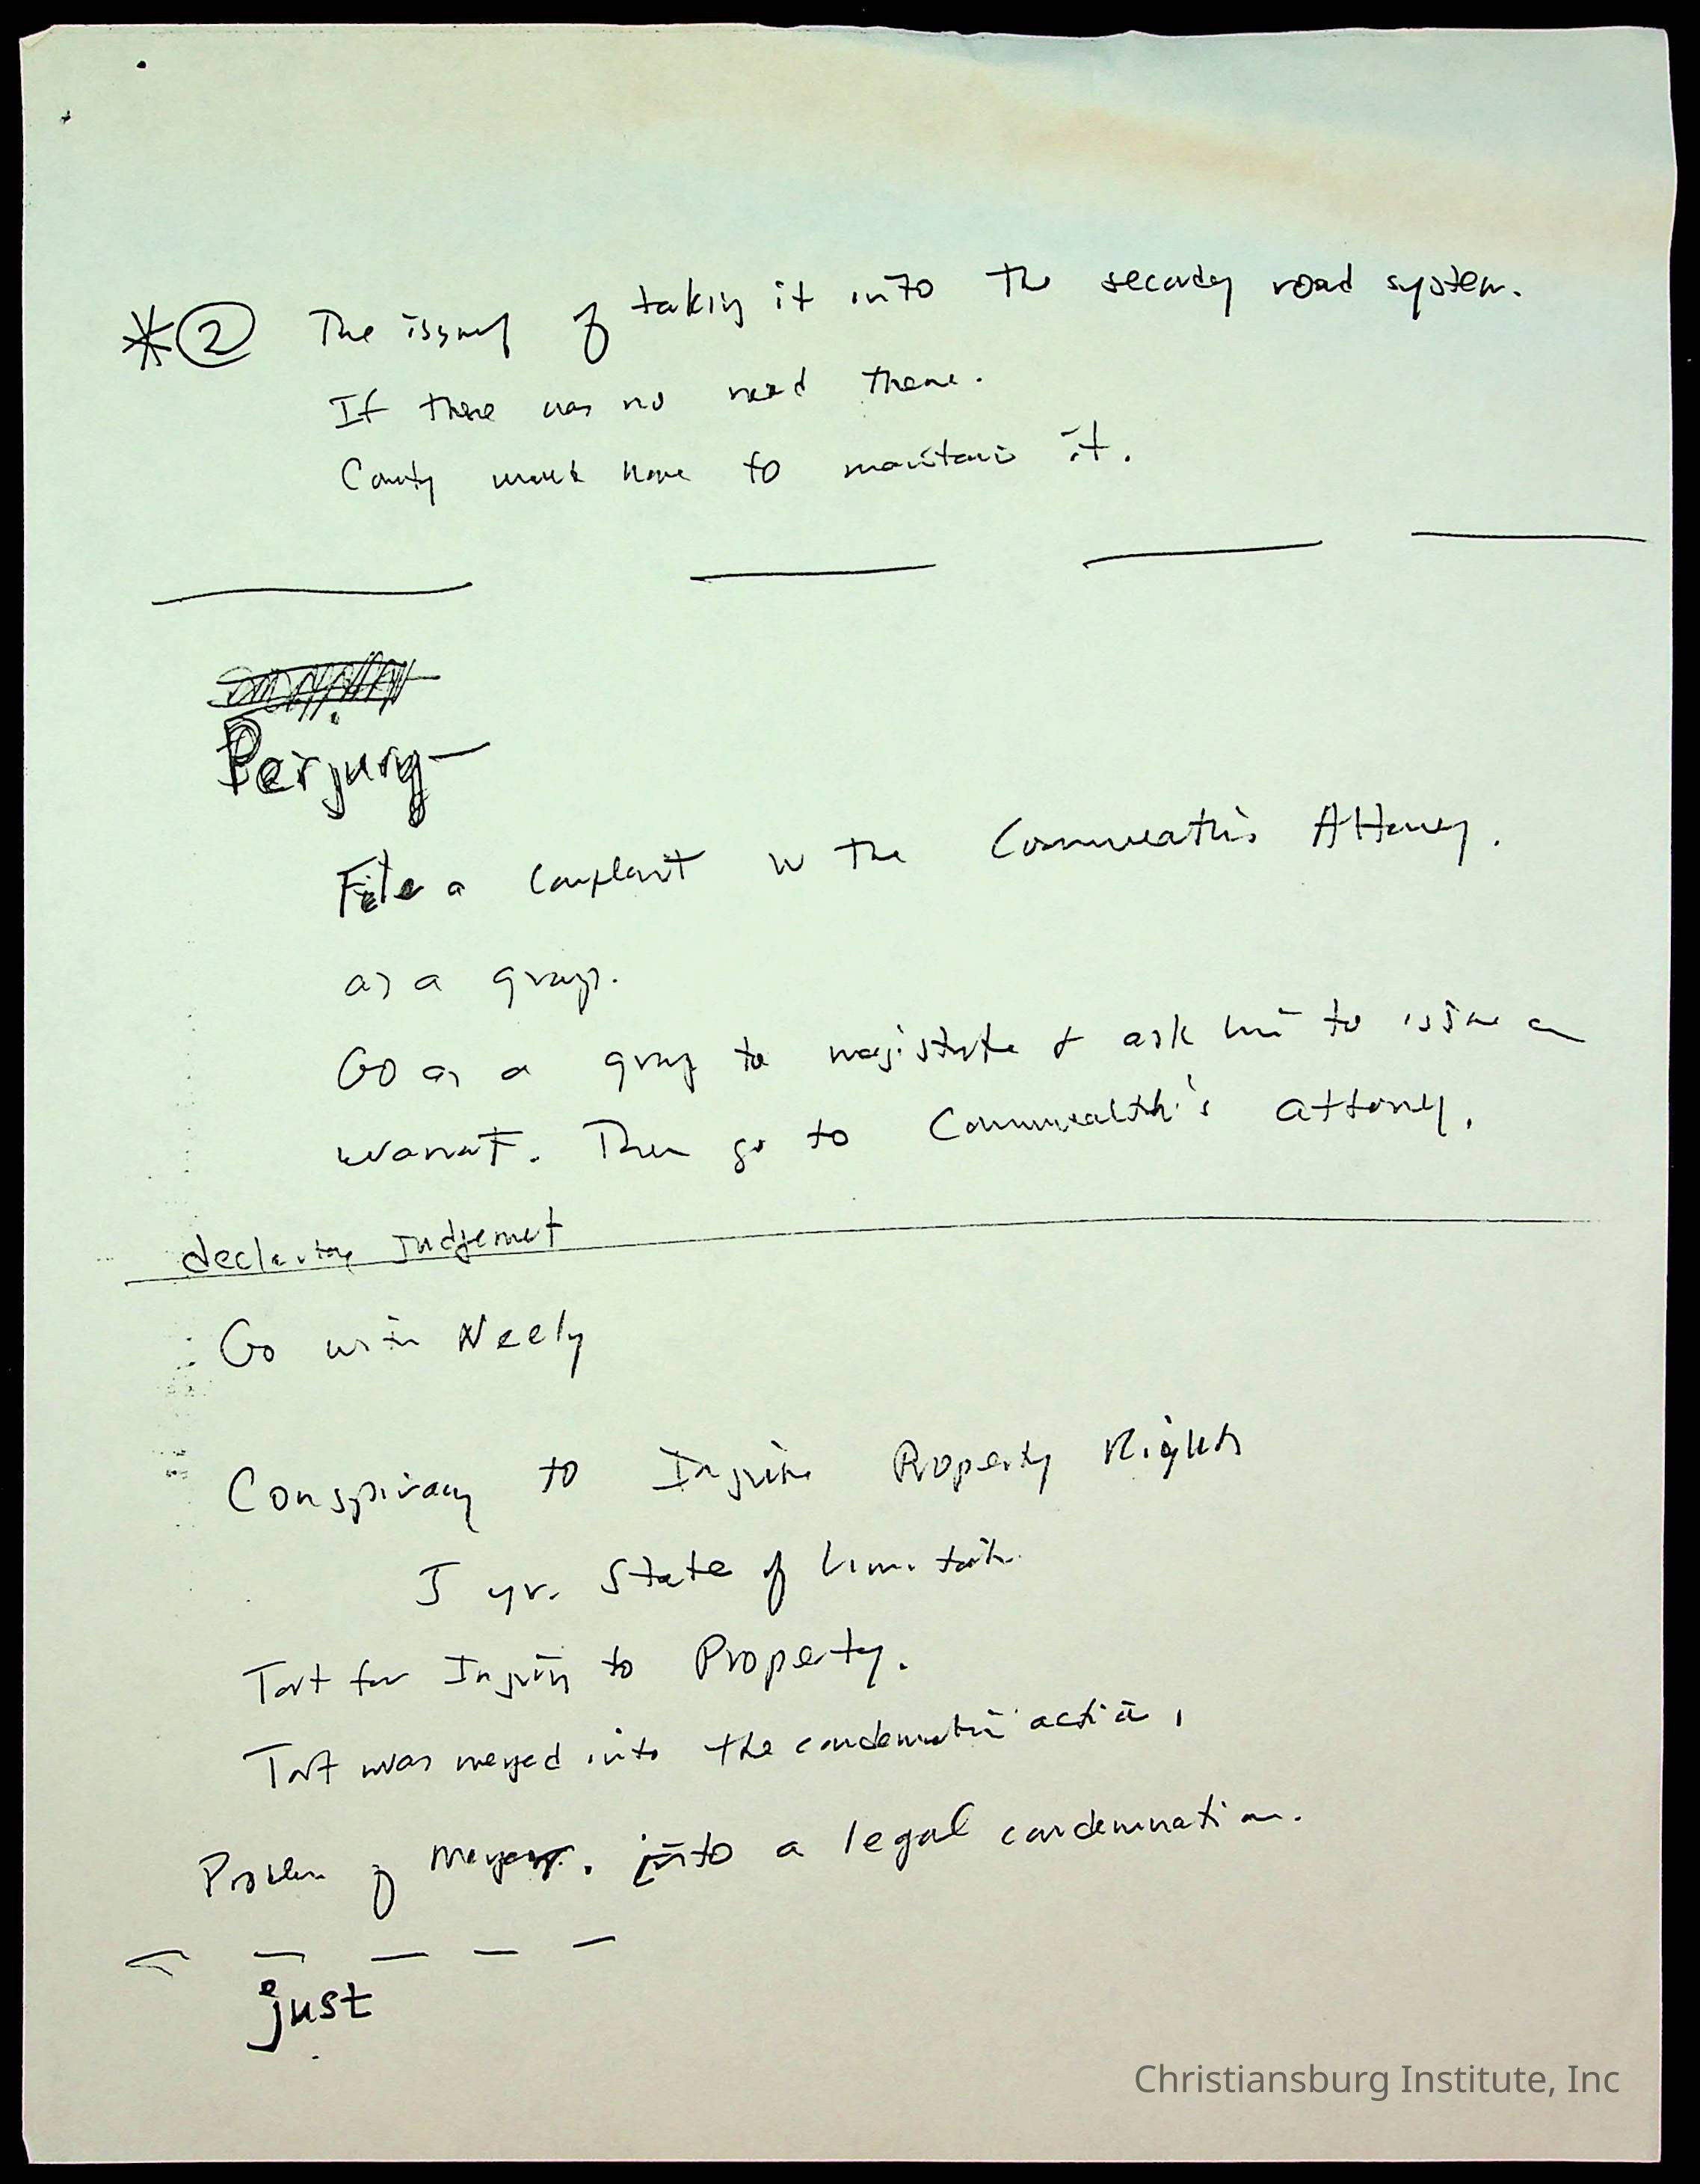 * ② The issue of taking it into the secondary road system.
If there was no road there.
County would have to maintain it.
Perjury —
File a complaint w the Commonwealth's Attorney.
as a group.
Go as a group to magistrate & ask him to issue a
warrant. Then go to Commonwealth's attorney.
declaratory Judgement
Go with Neely
Conspiracy to Injure Property Rights
5 yr. State of Limitation
Tort for Injury to Property.
Tort was merged into the condemnation action,
Problem of merger. into a legal condemnation.
just
Christiansburg Institute, Inc